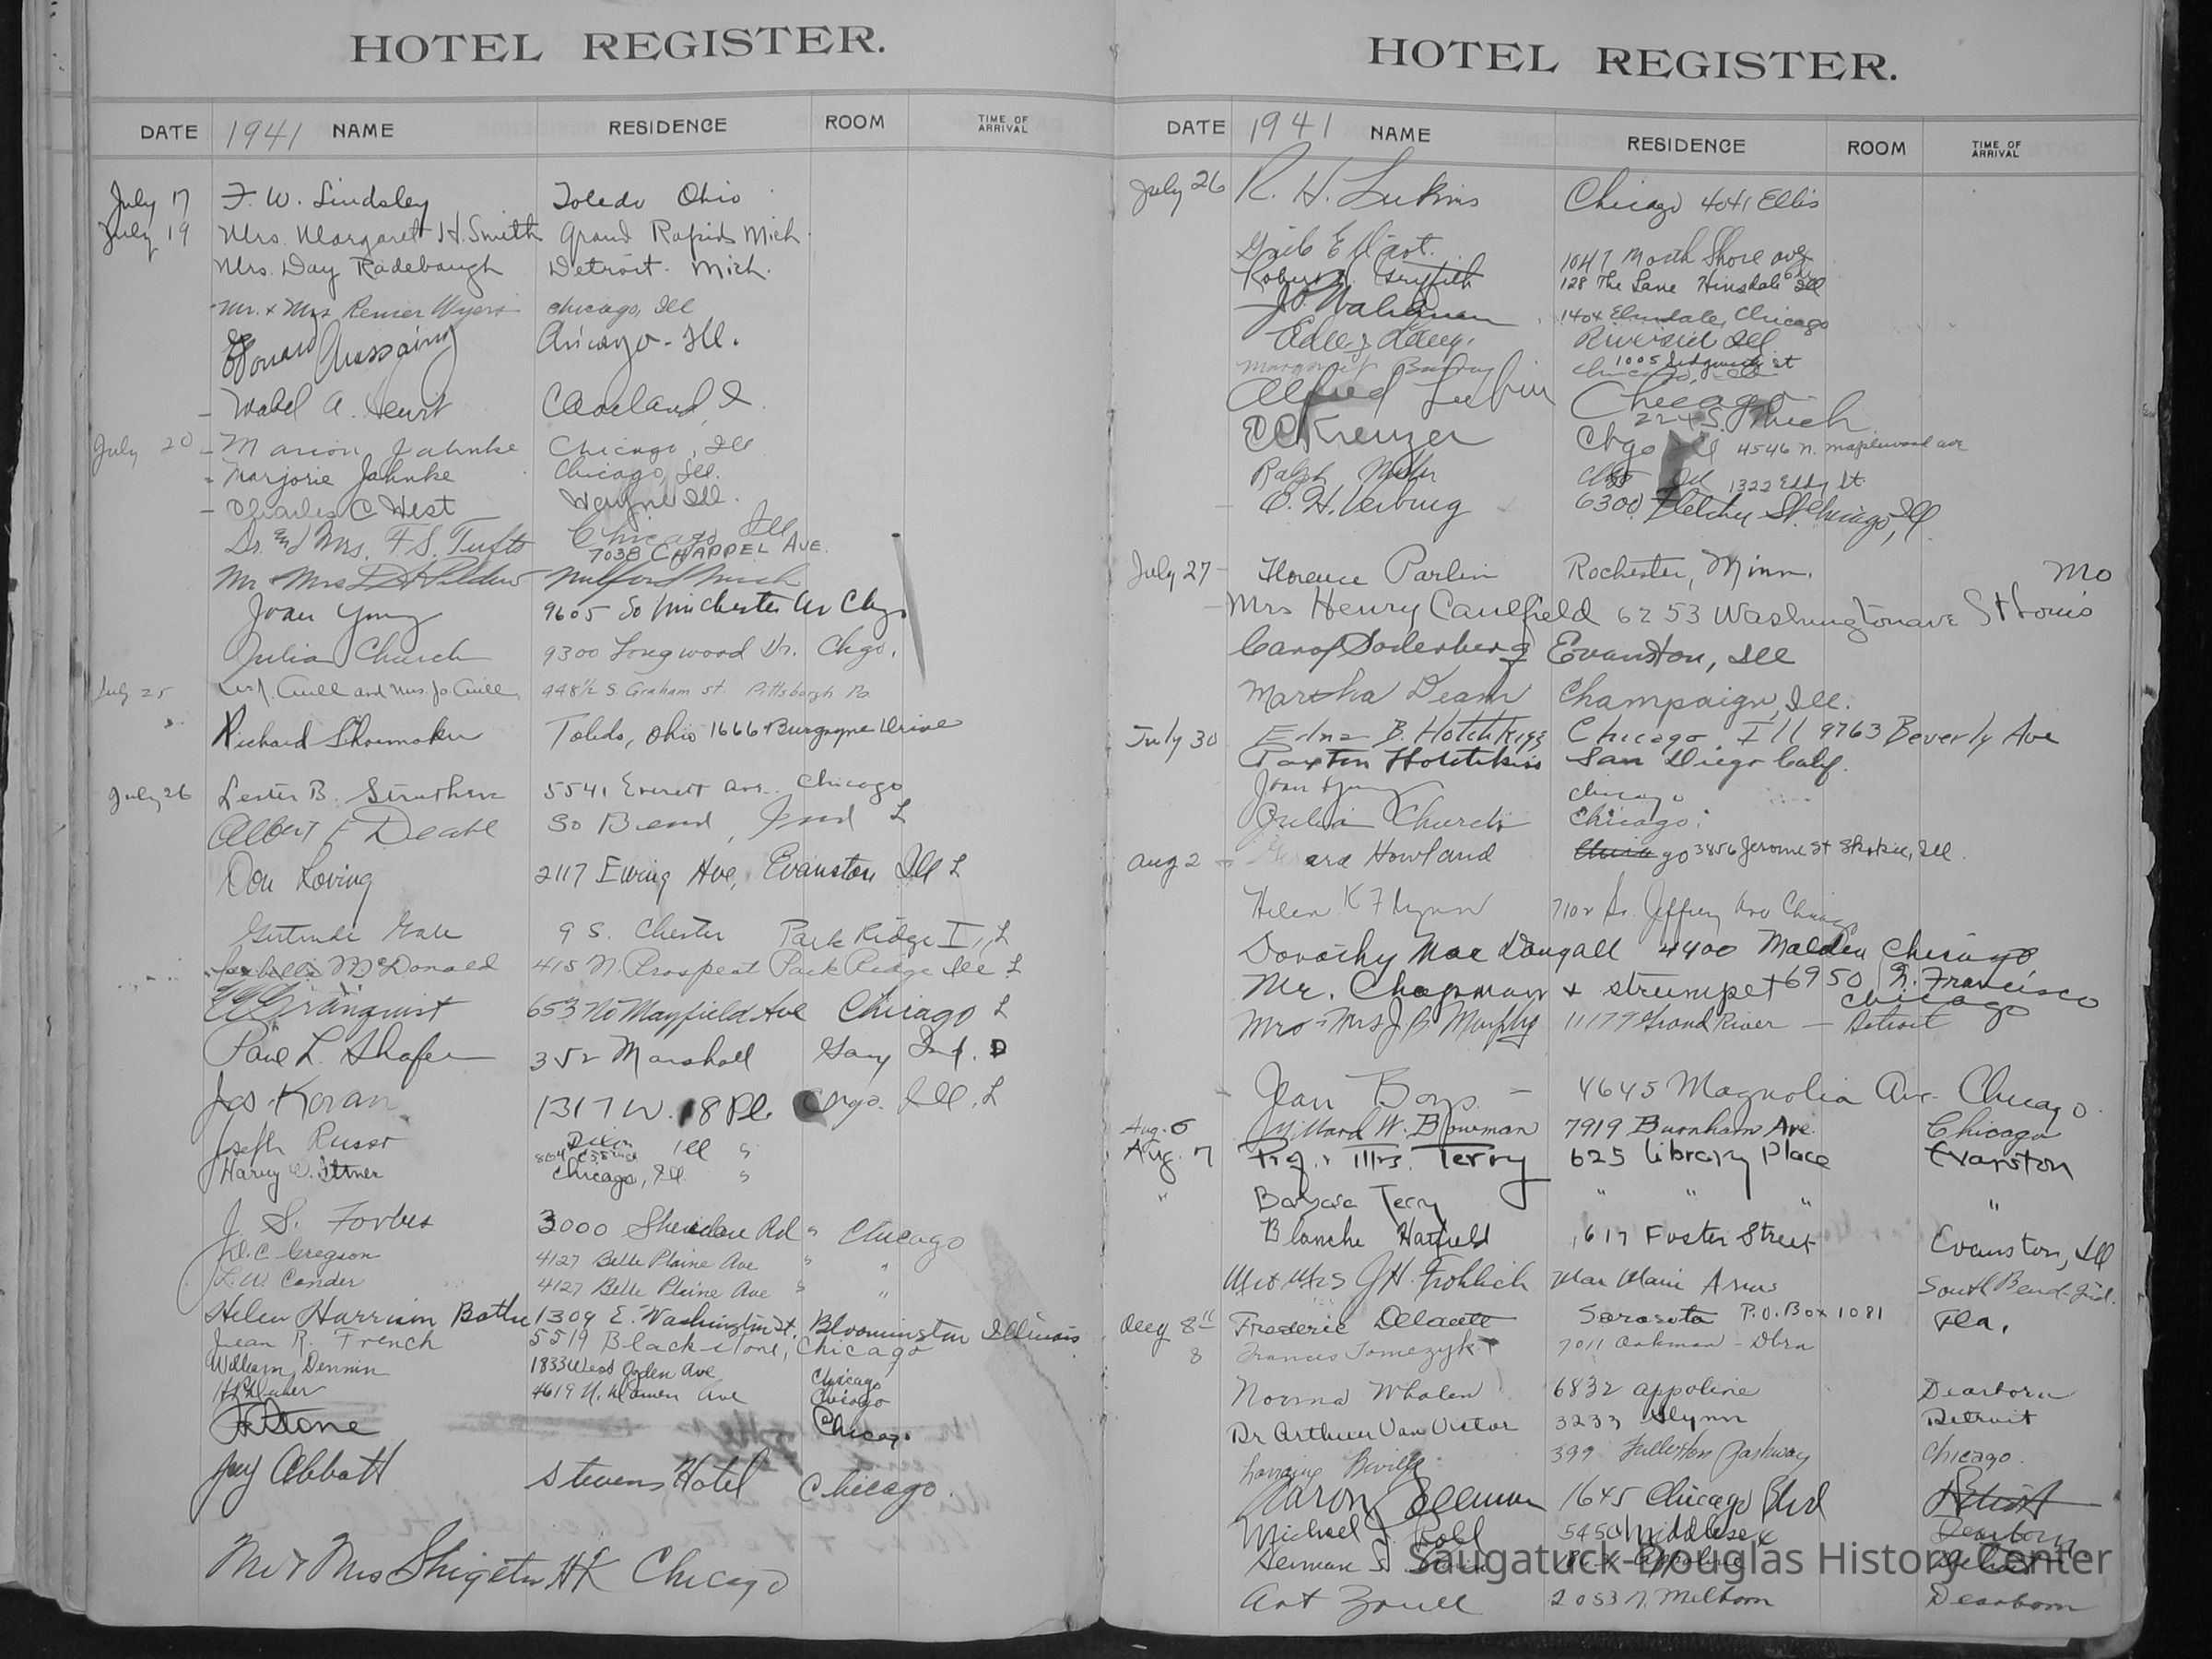 HOTEL REGISTER.
DATE 1941 NAME RESIDENCE ROOM TIME OF ARRIVAL
July 17 F. W. Lindsley Toledo Ohio
July 19 Mrs. Margaret H. Smith Grand Rapids Mich.
Mrs. Day Radebaugh Detroit. Mich.
Mr. + Mrs Renier Wyers Chicago, Ill
Edouard Chassaing Chicago - Ill.
Mabel A. Cleveland, O.
July 20 Marion Jahnke Chicago, Ill
Marjorie Jahnke Chicago, Ill.
Charles C West Wayne Ill.
Dr. and Mrs. F S. Tufts Chicago Ill
7038 CHAPPEL AVE.
Mr + Mrs Milford Mich
Joan Young 9605 So Winchester Av Chgo
Julia Church 9300 Longwood Dr. Chgo.
July 25 and Mrs. Jo 948½ S. Graham St. Pittsburgh Pa
Richard Shoemaker Toledo, Ohio 1666 Burgoyne Drive
July 26 Lester B. Struthers 5541 Everett Ave. Chicago
Albert F Deahl So Bend, Ind L
Don Loving 2117 Ewing Ave, Evanston Ill L
Gertrude Gale 9 S. Chester Park Ridge Ill L
Isabelle McDonald 415 N. Prospect Park Ridge Ill L
Granquist 653 No Mayfield Ave Chicago L
Paul L. Shafer 352 Marshall Gary Ind. D
Jos. Koran 1317 W. 18 Pl. Chgo. Ill. L
Joseph Russo Dixon Ill "
Harvey W. Ittner Chicago, Ill. "
J. S. Forbes 3000 Sheridan Rd " Chicago
D. C. Gregson 4127 Belle Plaine Ave " "
L. W. Conder 4127 Belle Plaine Ave " "
Helen Harrison Bath 1309 E. Washington St. Bloomington Illinois
Jean R. French 5519 Blackstone, Chicago
William Dennin 1833 West Ogden Ave Chicago
4619 N. Damen Ave Chicago
Stone Chicago
Jay Abbott Stevens Hotel Chicago.
Mr + Mrs Shigeta HK Chicago
HOTEL REGISTER.
DATE 1941 NAME RESIDENCE ROOM TIME OF ARRIVAL
July 26 R. H. Lukins Chicago 4041 Ellis
Gail E 1047 North Shore Ave
Robert Griffith 128 The Lane Hinsdale Ill
J. 1404 Elmdale, Chicago
Riverside Ill
Margaret 1005 Sedgwick St
Chicago, Ill
Alfred Chicago
224 S. Mich
E C Kreuzer Chgo Ill 4546 N. Maplewood Ave
Ralph Miller Chgo Ill 1322 Eddy St.
O. H. Verburg 6300 Fletcher St. Chicago, Ill.
July 27 Florence Parlin Rochester, Minn.
Mrs Henry Caulfield 6253 Washington ave St Louis Mo
Carol Soderberg Evanston, Ill
Marsha Deam Champaign, Ill.
July 30 Edna B. Hotchkiss Chicago Ill 9763 Beverly Ave
Paxton Hotchkiss San Diego Calif.
Joan Young Chicago
Julia Church Chicago.
Aug 2 Howland go 3856 Jerome St Skokie, Ill.
Helen K Flynn 7102 So. Jeffrey Ave Chicago
Dorothy MacDougall 4400 Malden Chicago
Mr. Chapman + strumpet 6950 N. Francisco
Chicago
Mr + Mrs J. B. Murphy 11179 Grand River - Detroit
Jean Boys - 4645 Magnolia Av. Chicago
Aug. 6 Millard W. Bowman 7919 Burnham Ave. Chicago
Aug. 7 Prof. + Mrs. Terry 625 Library Place Evanston
" Barbara Terry " " " "
Blanche Hatfield 1617 Foster Street Evanston, Ill
Mr + Mrs J. H. Frohlich Mar Main Arms South Bend-Ind.
Aug 8 Frederic Delautte Sarasota P.O. Box 1081 Fla.
8 Francis Tomczyk 7011 Oakman - Dbrn
Norma Whalen 6832 Appoline Dearborn
Dr Arthur Van Victor 3233 Glynn Detroit
Lorraine 399 Fullerton Parkway Chicago.
Aaron Seeman 1645 Chicago Blvd Detroit
Michael J. Poll 5450 Middlesex Dearborn
Herman S. Appoline
Art Zrull 2053 N. Melborn Dearborn
Saugatuck-Douglas History Center